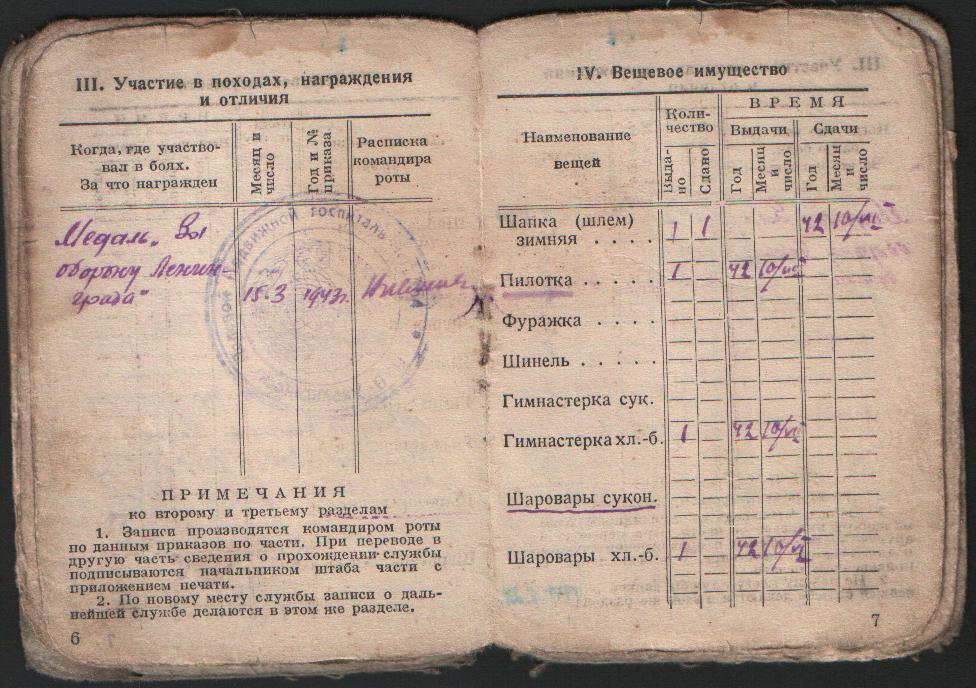 III. Участие в походах, награждения
и отличия
Когда, где участво-
вал в боях.
За что награжден
Месяц и
число
Год и №
приказа
Расписка
командира
роты
Медаль „За
оборону Ленин-
града"
15.3
1943г.
ПОДВИЖНОЙ ГОСПИТАЛЬ
ПРИМЕЧАНИЯ
ко второму и третьему разделам
1. Записи производятся командиром роты
по данным приказов по части. При переводе в
другую часть сведения о прохождении службы
подписываются начальником штаба части с
приложением печати.
2. По новому месту службы записи о даль-
нейшей службе делаются в этом же разделе.
6
IV. Вещевое имущество
Наименование
вещей
Коли-
чество
ВРЕМЯ
Выдачи
Сдачи
Выда-
но
Сдано
Год
Месяц
и
число
Год
Месяц
и
число
Шапка (шлем)
зимняя . . . . 1 1 42 10/VI
Пилотка . . . . . 1 42 10/VI
Фуражка . . . .
Шинель . . . . .
Гимнастерка сук.
Гимнастерка хл.-б. 1 42 10/VI
Шаровары сукон.
Шаровары хл.-б. 1 42 10/VI
7